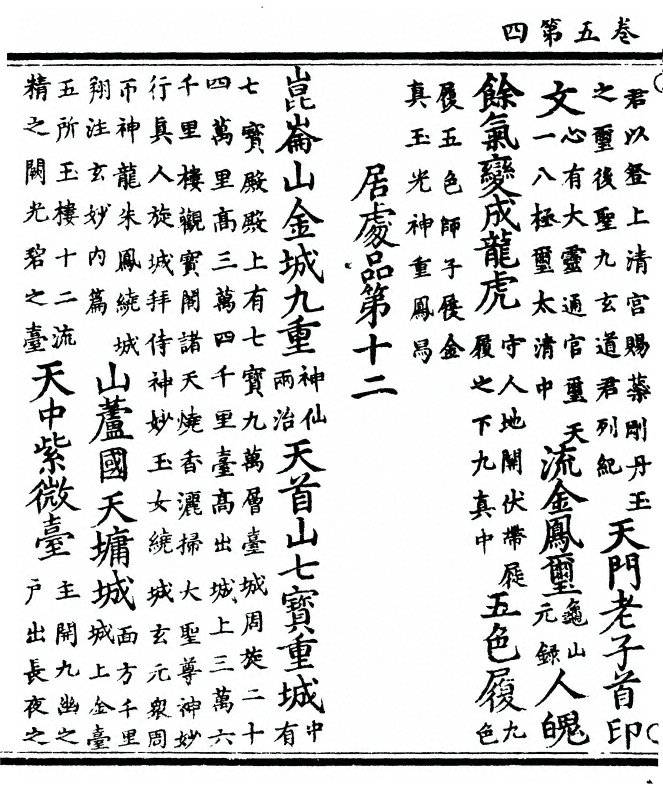 卷五第四
君以登上清宮賜藥剛丹玉
之璽後聖九玄道君列紀
天門老子首印
文
心有大靈通官璽天
一八極璽太清中
流金鳳璽
龜山
元錄
人魄
餘氣變成龍虎
守人地開伏帶屣
履之下九真中
五色履
九
色
履五色師子屐金
真玉光神重鳳舄
居處品第十二
崑崙山金城九重
神仙
兩治
天首山七寶重城
中
有
七寶殿殿上有七寶九萬層臺城周旋二十
四萬里高三萬四千里臺高出城上三萬六
千里樓觀寶閣諸天燒香灑掃大聖尊神妙
行真人旋城拜侍神妙玉女繞城玄元眾周
帀神龍朱鳳繞城
翔注玄妙內篇
山蘆國天墉城
面方千里
城上金臺
五所玉樓十二流
精之闕光碧之臺
天中紫微臺
主開九幽之
戶出長夜之